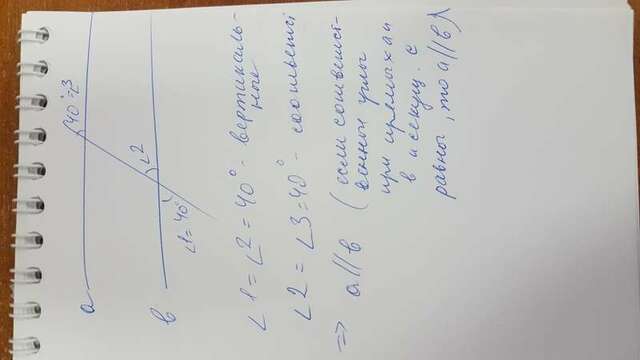 a
40°=∠3
∠2
в
∠1=40°
∠1 = ∠2 = 40° - вертикаль-
ные
∠2 = ∠3 = 40° - соответст
⇒ a // в (если соответст-
венные углы
при прямых a и
в и секущ. с
равны, то a // в)